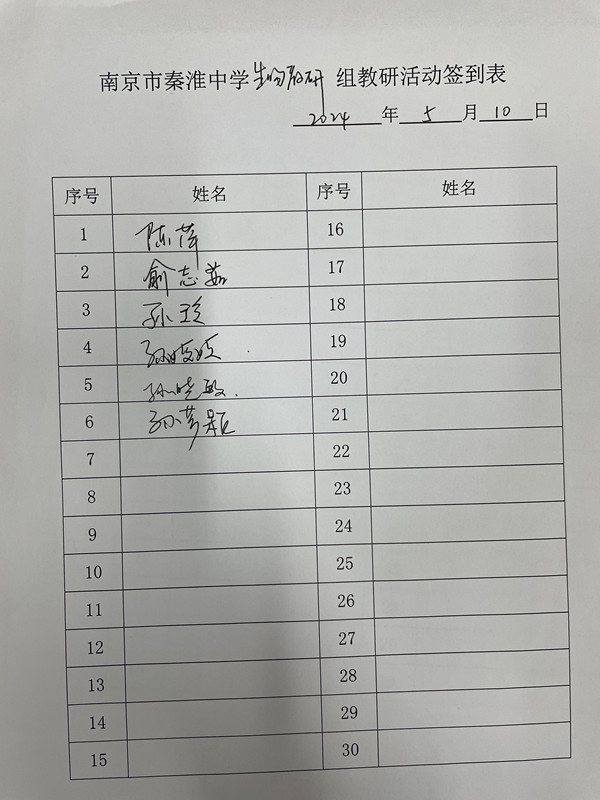 南京市秦淮中学生物教研组教研活动签到表
2024年5月10日
序号 姓名 序号 姓名
1 陈萍 16
2 俞志茹 17
3 孙珍 18
4 孙 19
5 孙晓敏. 20
6 孙梦颖 21
7 22
8 23
9 24
10 25
11 26
12 27
13 28
14 29
15 30